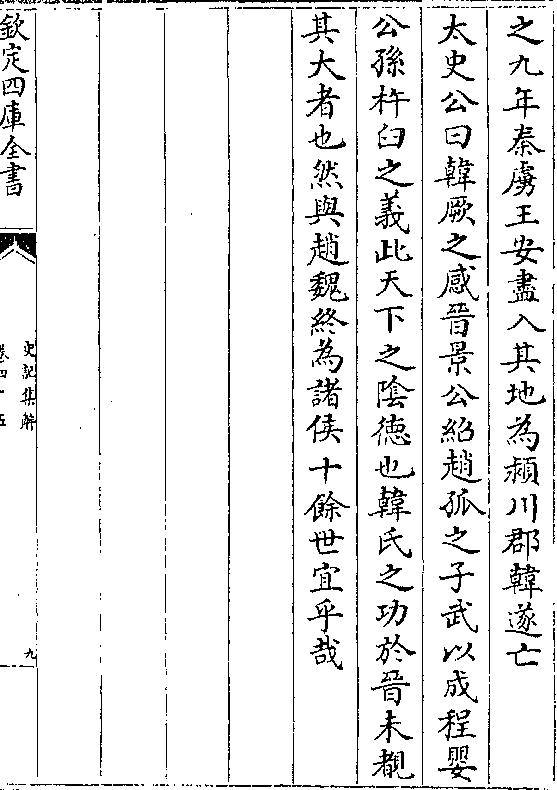 之九年秦虜王安盡入其地為潁川郡韓遂亡
太史公曰韓厥之感晉景公紹趙孤之子武以成程嬰
公孫杵臼之義此天下之陰德也韓氏之功於晉未覩
其大者也然與趙魏終為諸侯十餘世宜乎哉
欽定四庫全書
史記集解
卷四十五
九